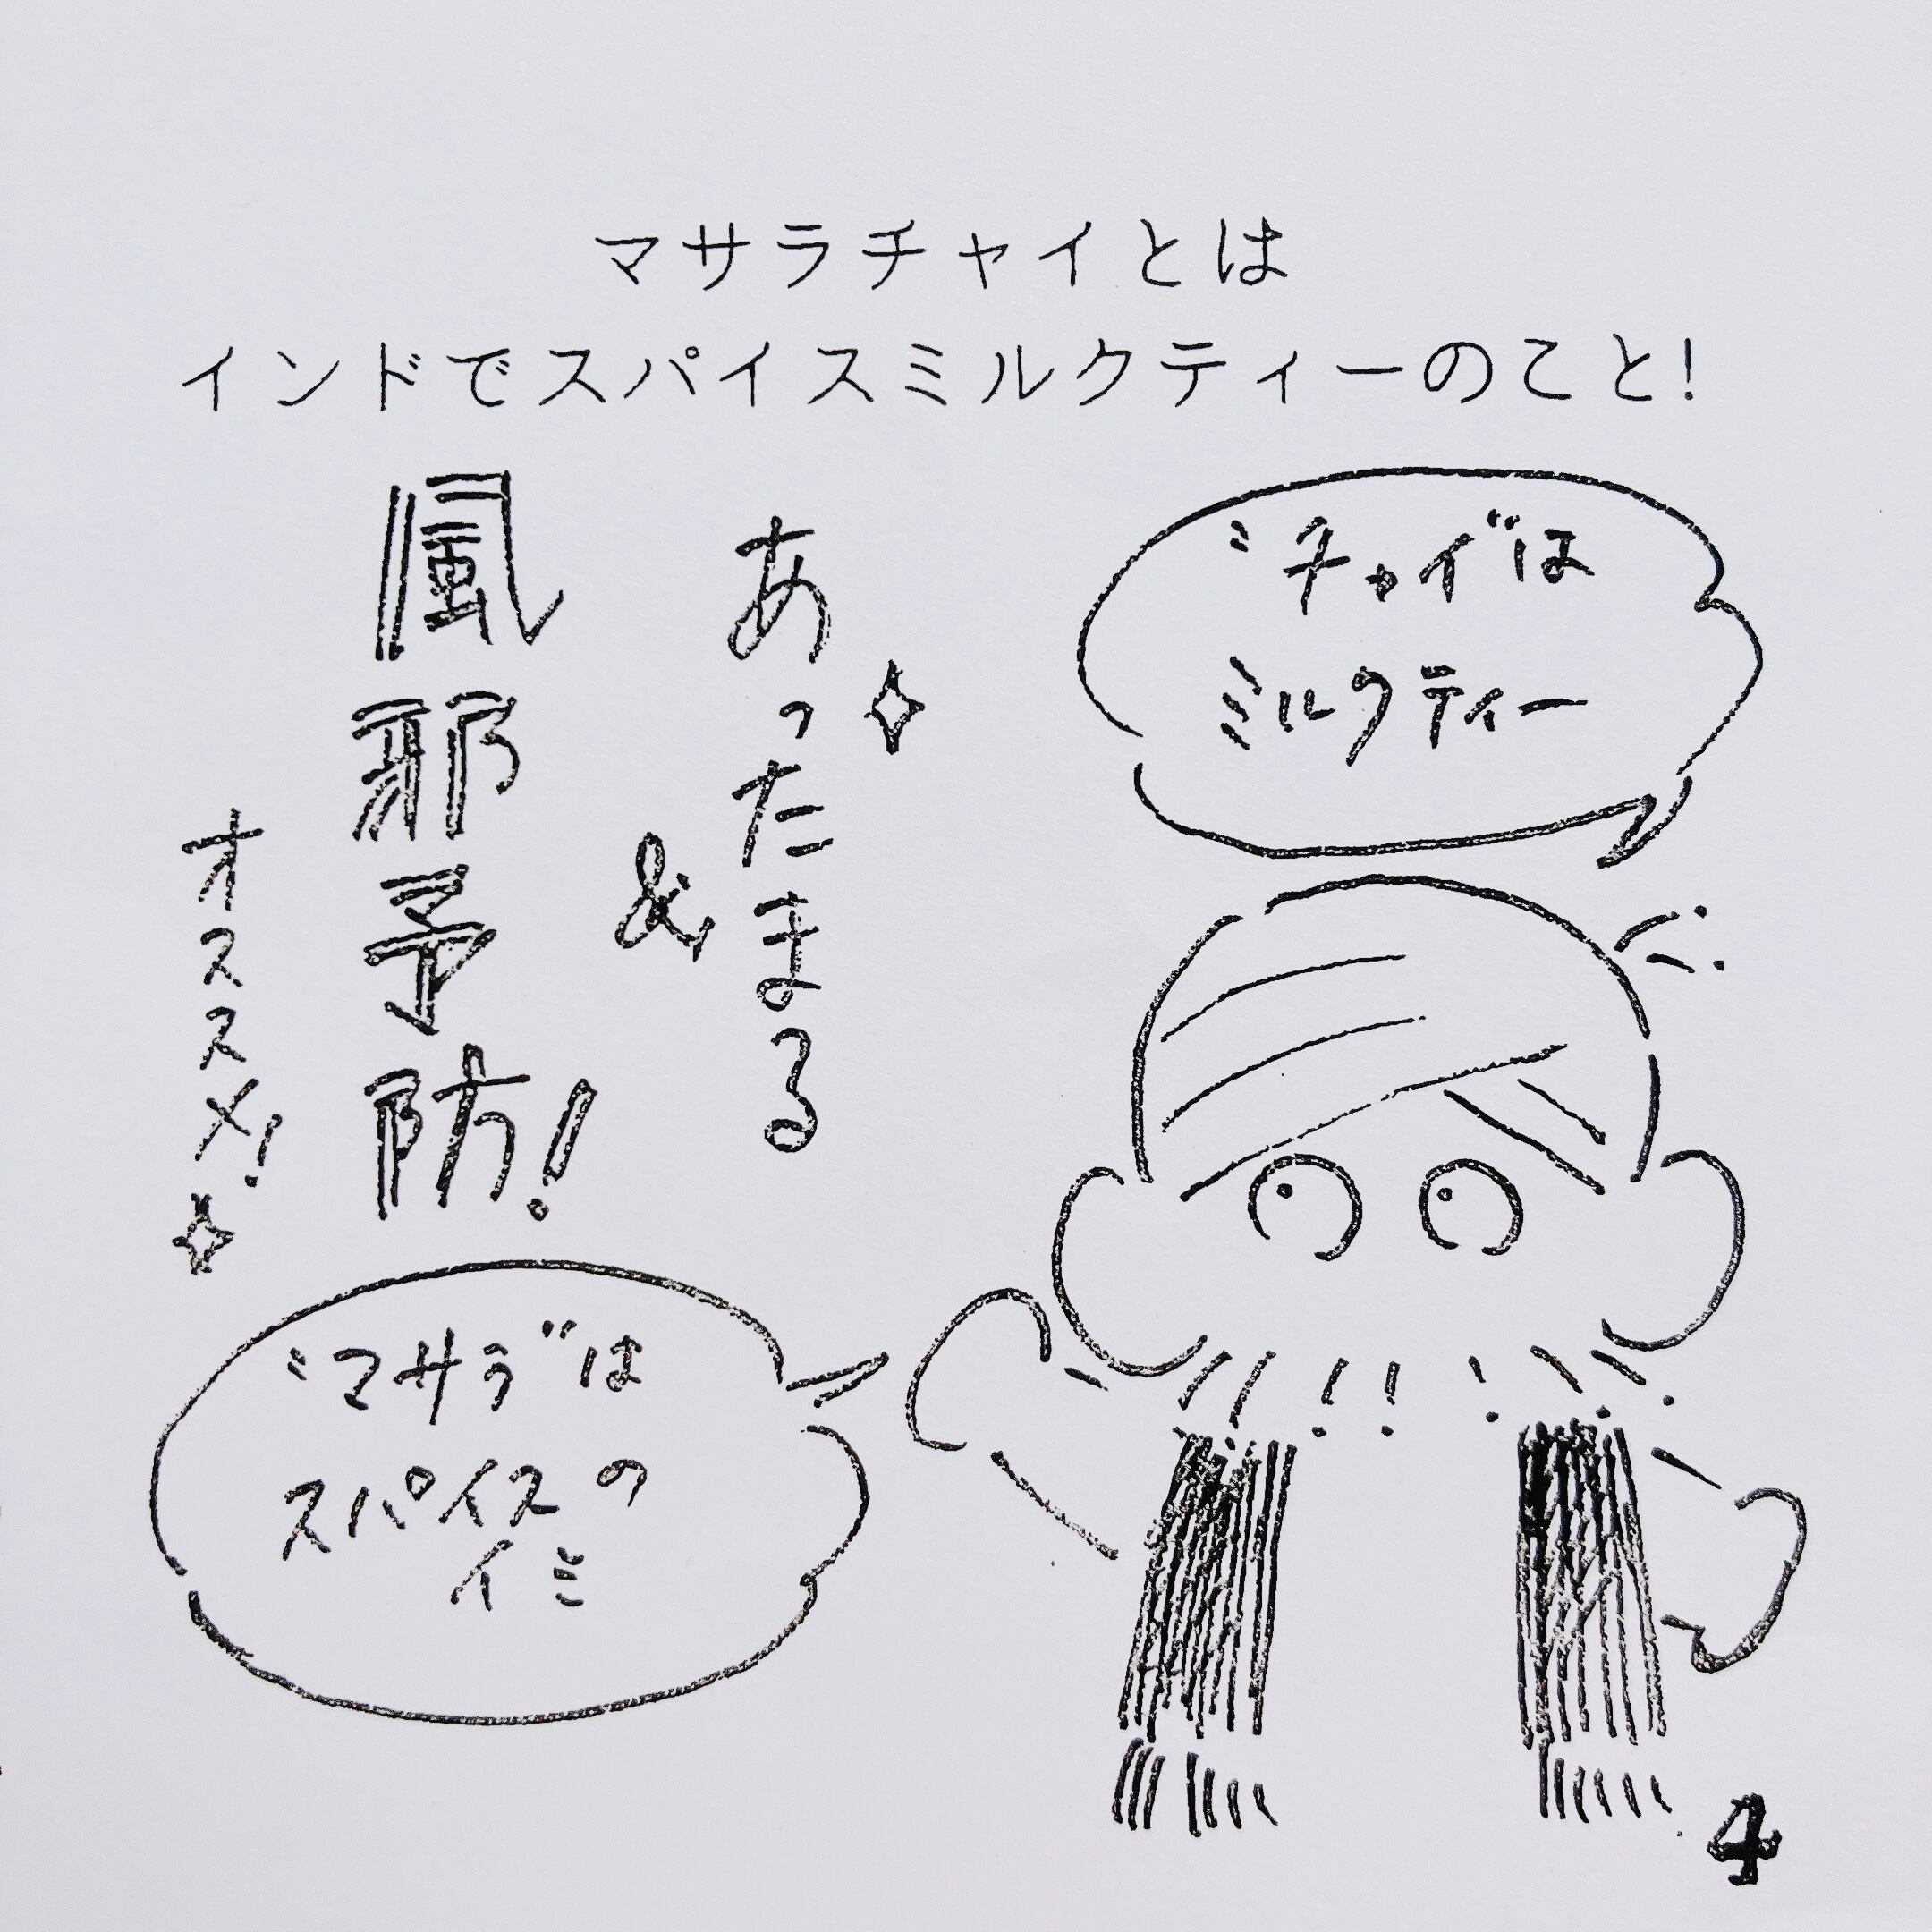 マサラチャイとは
インドでスパイスミルクティーのこと!
"チャイ"は
ミルクティー
あったまる
&
風邪予防!
オススメ!
"マサラ"は
スパイスの
イミ
4